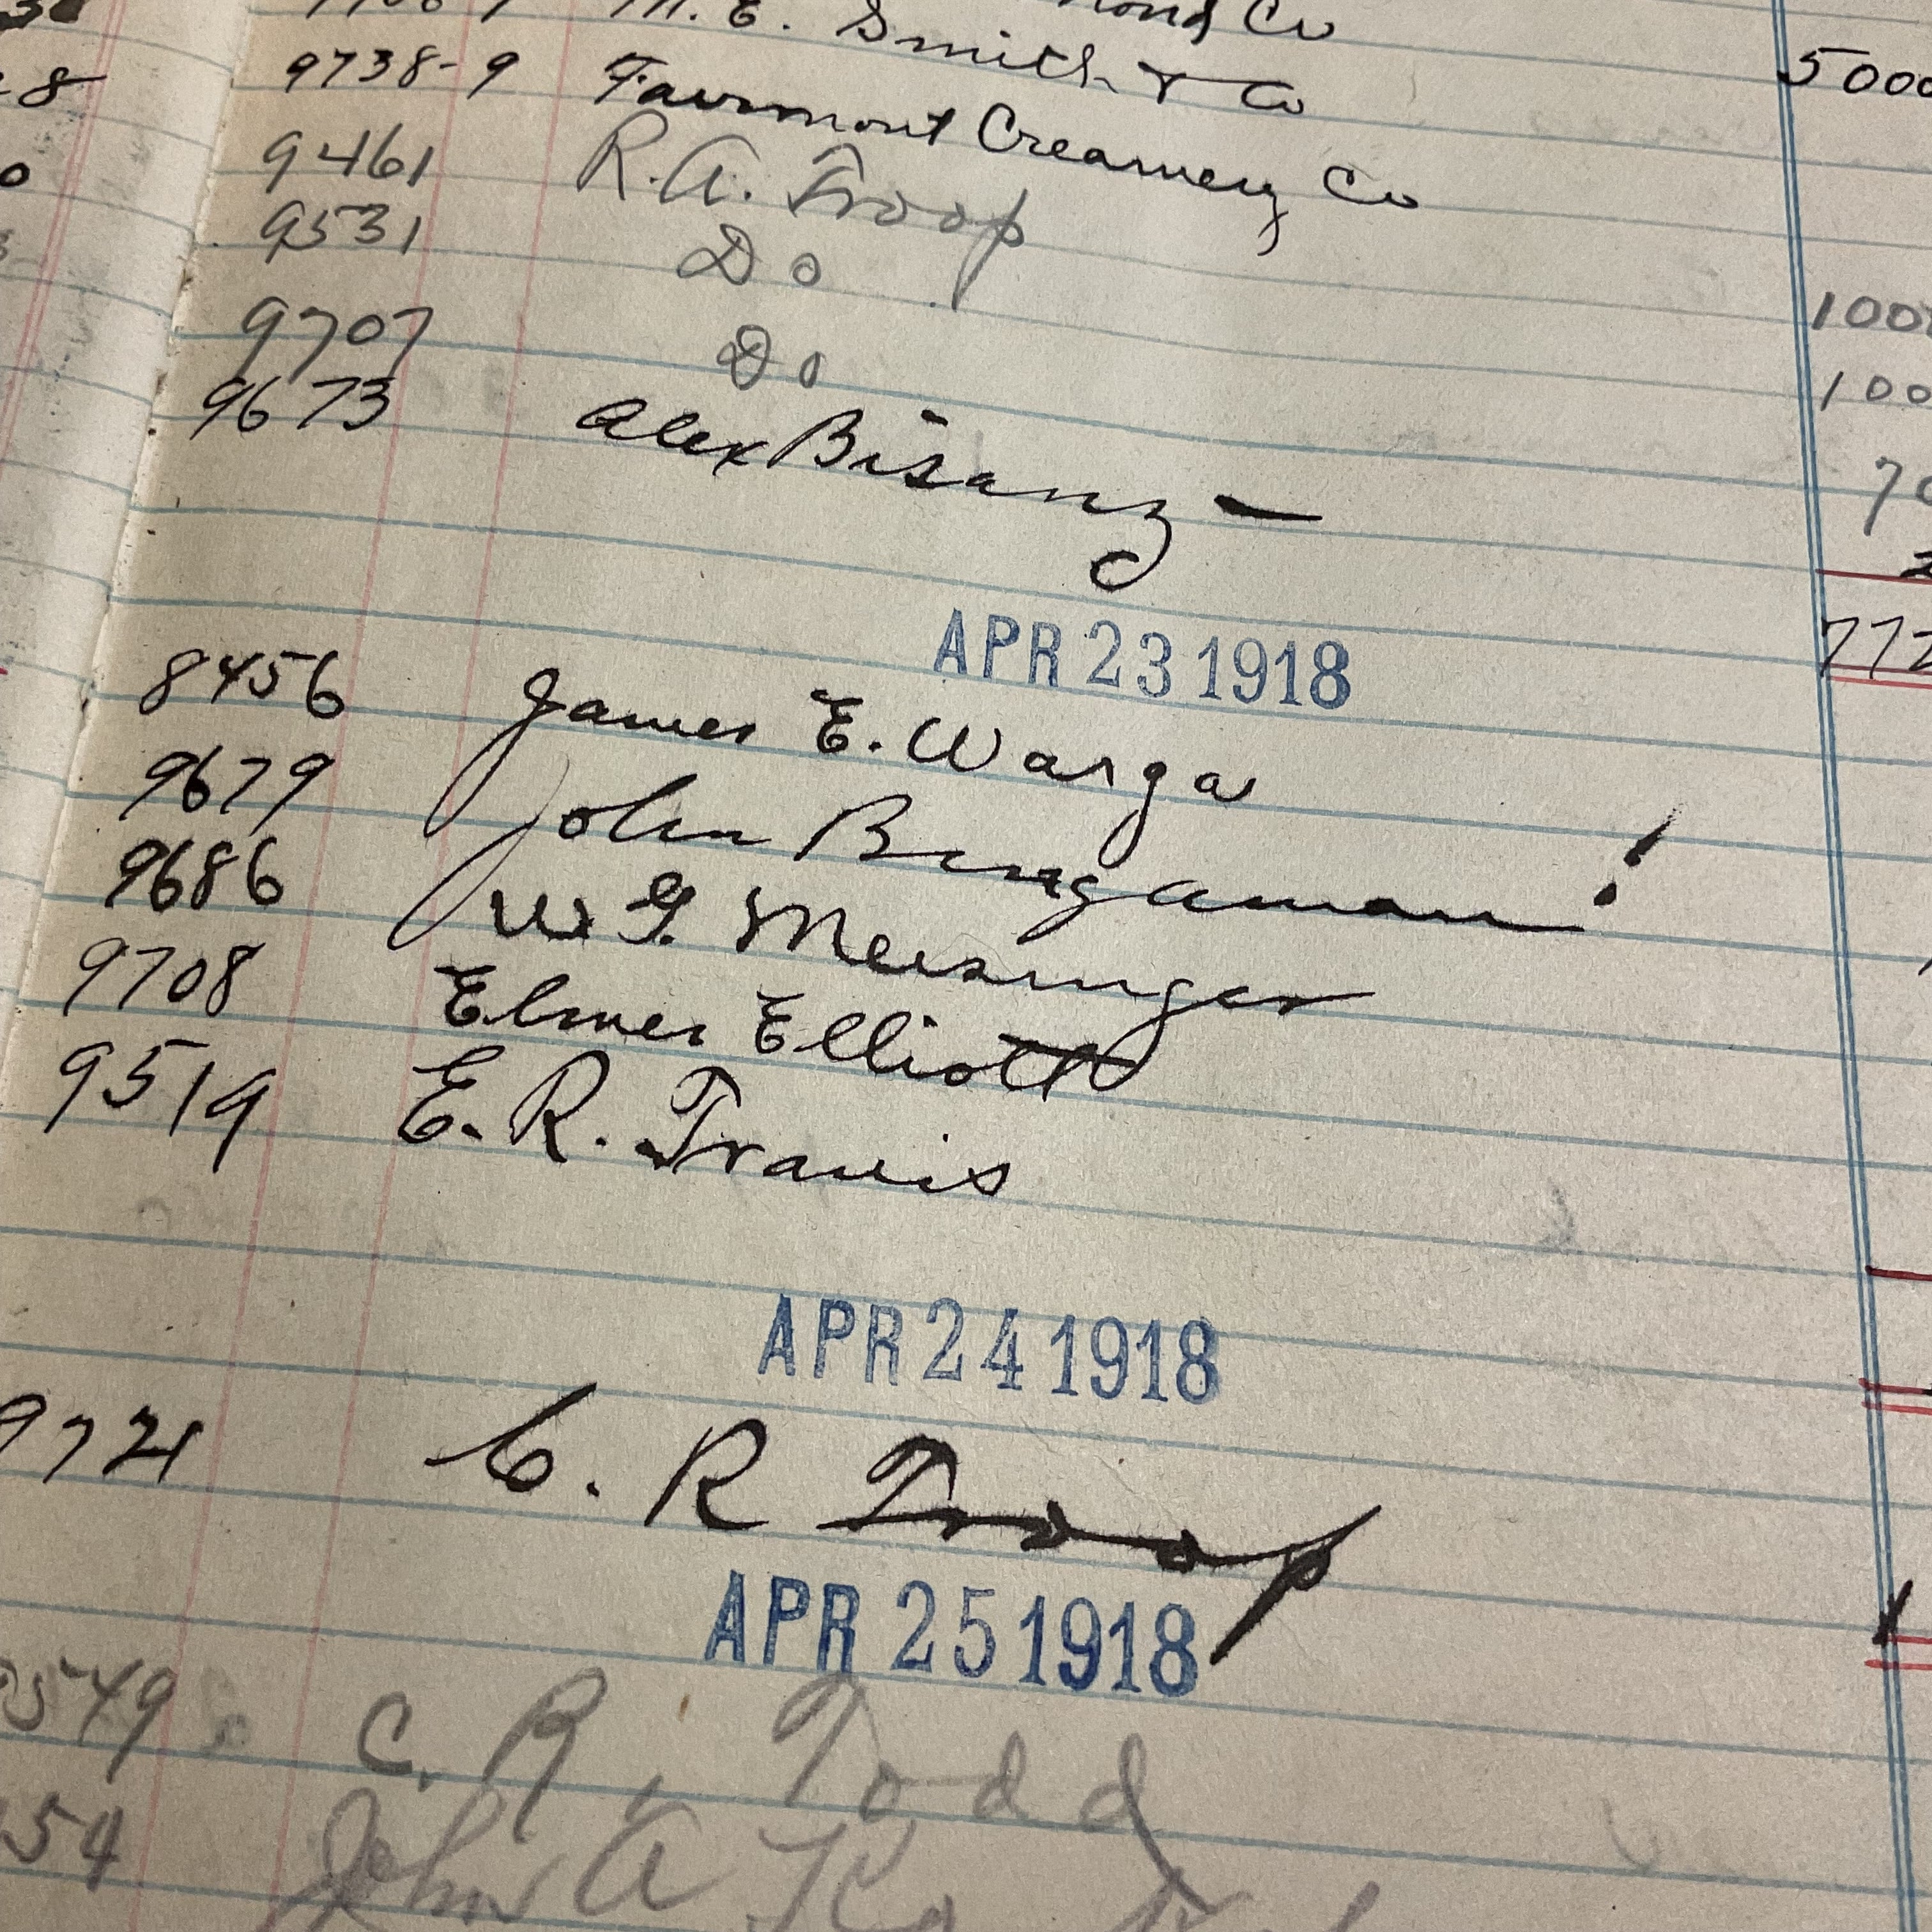 M. E. Smith & Co
9738-9 Fairmont Creamery Co 5000
9461 R. A. Troop
9531 Do 100
9707 Do 100
9673 Alex Bisanz — 70
APR 23 1918 772
8456 James E. Warga
9679 John Bengaman !
9686 W G. Meisinger
9708 Elmer Elliott
9519 E. R. Travis
APR 24 1918
9721 C. R Troop
APR 25 1918
549 C. R. Todd
54 John A